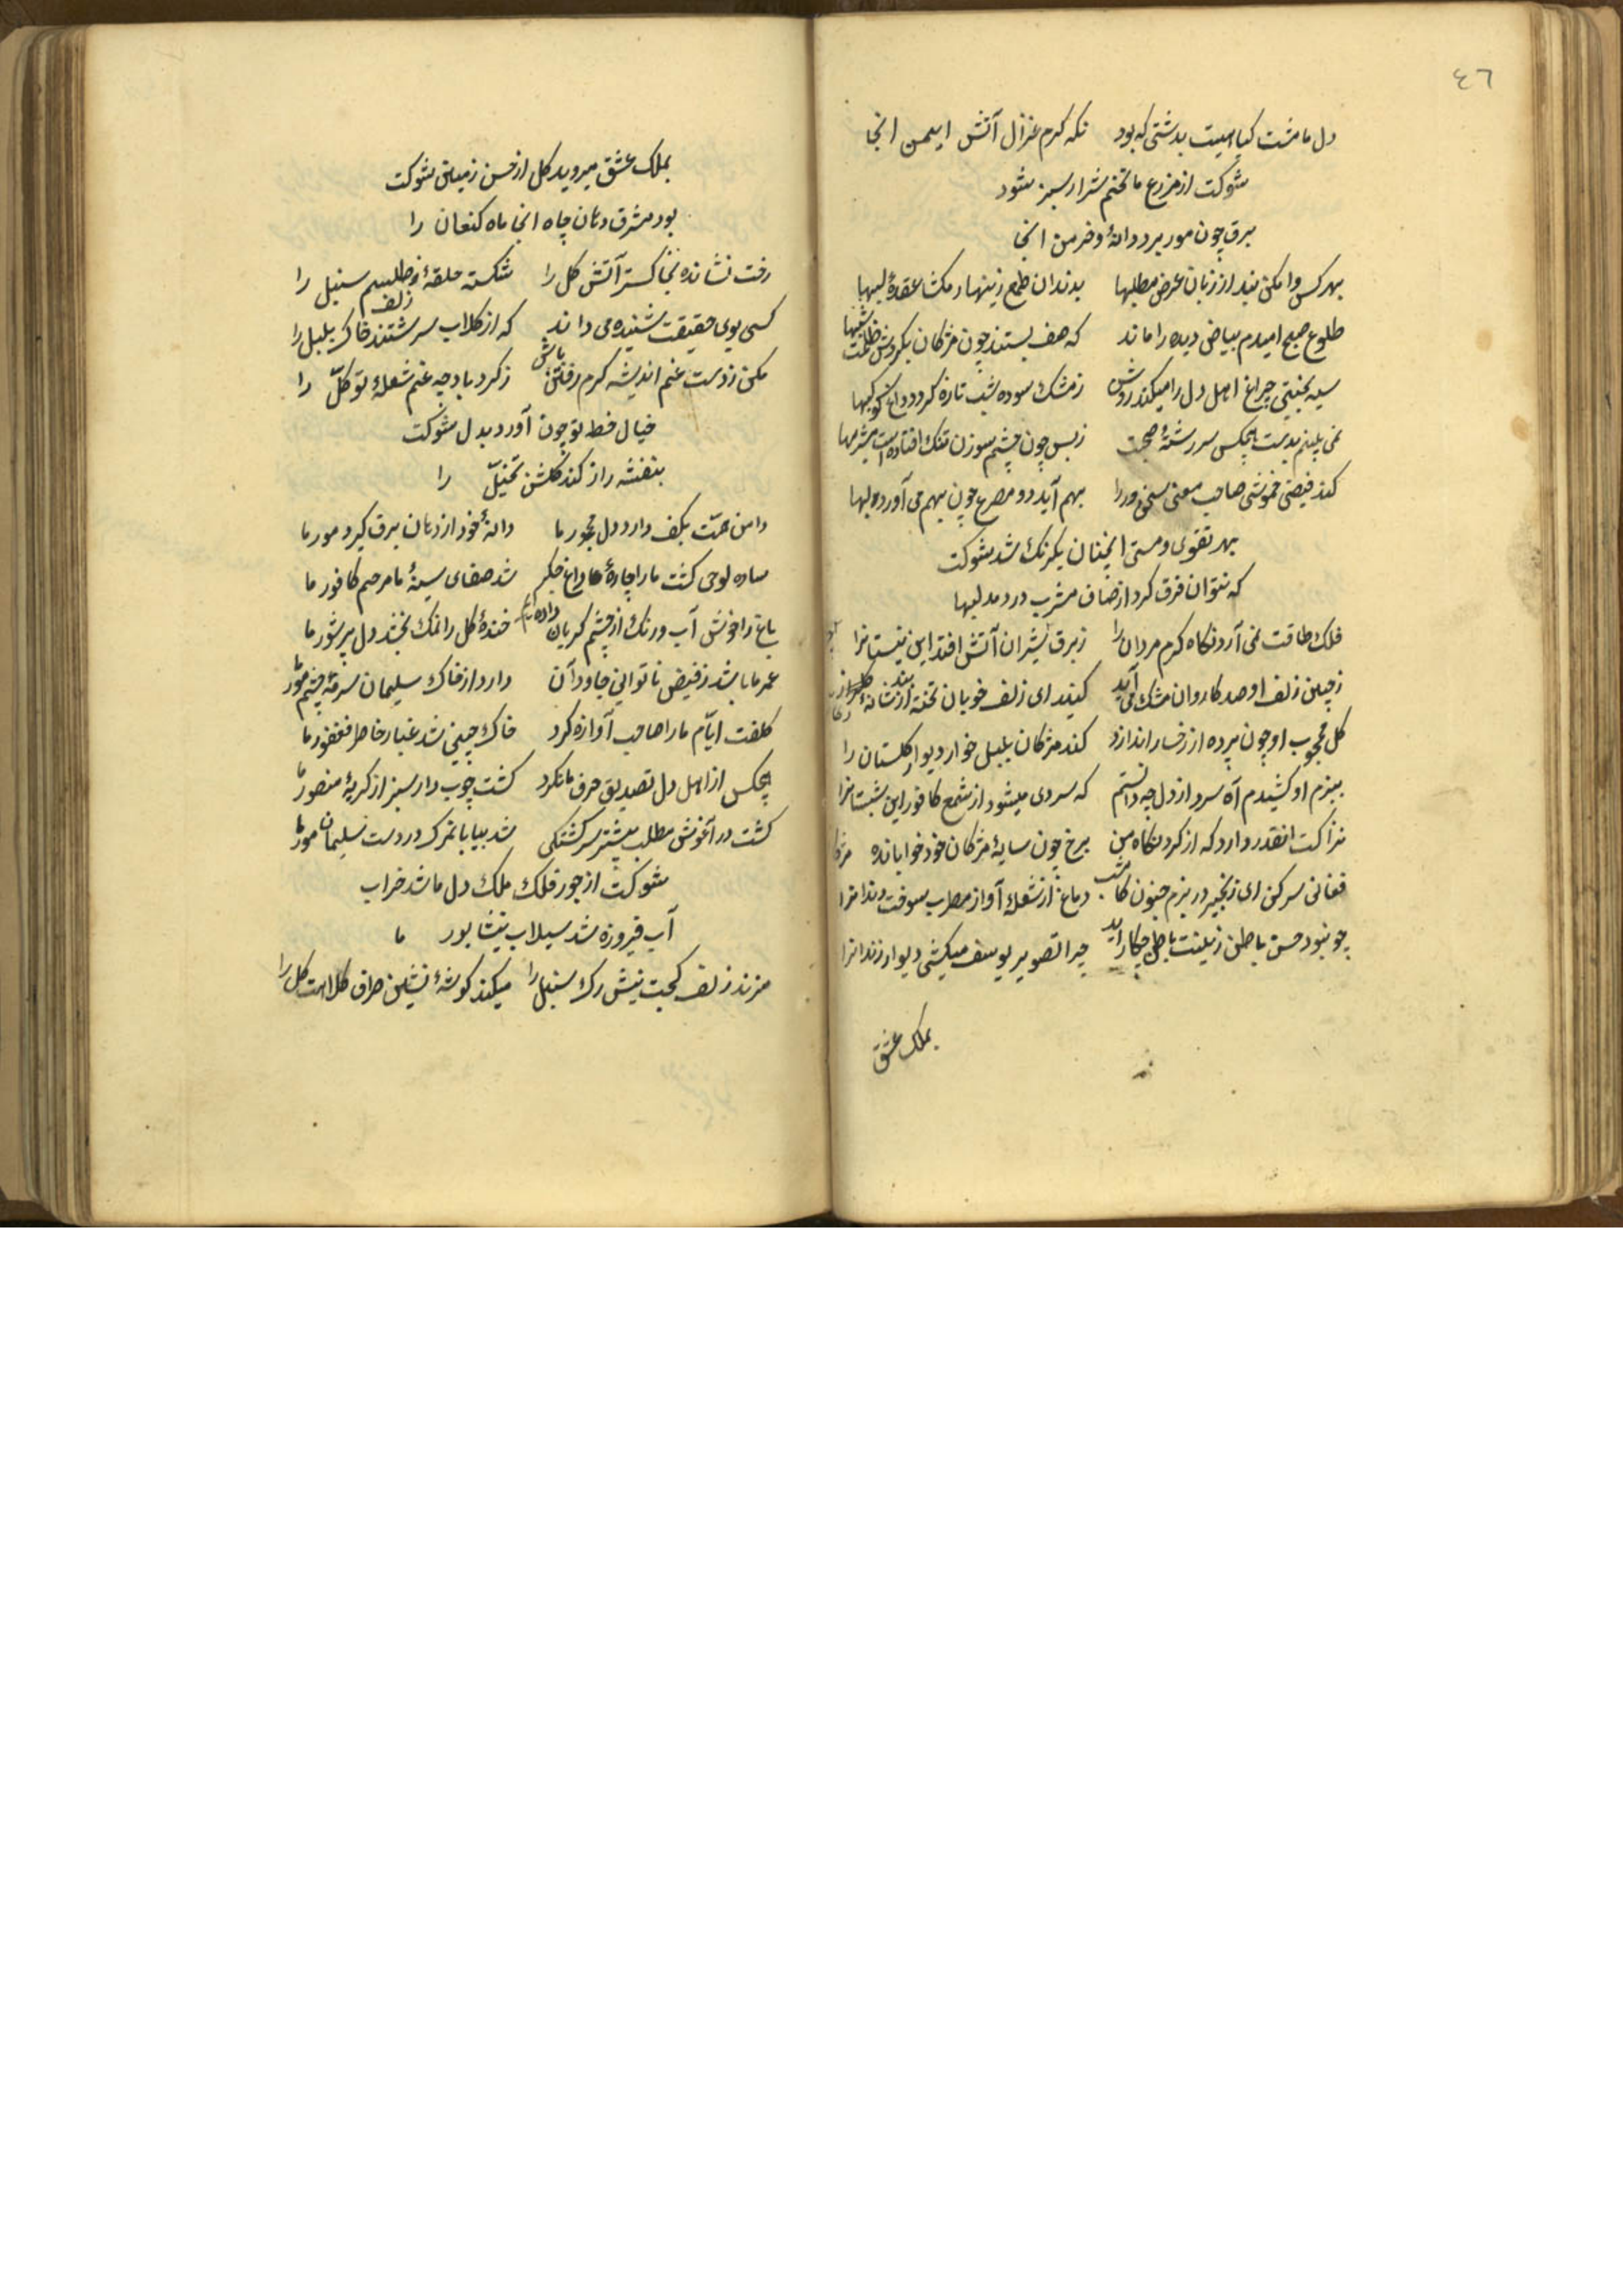 ٤٦
دل ما مشت کیاهیست بدشتی که بود نکه کرم غزال آتش ایمن انجا
شوکت از مزرع ما تخم شرار سبز شود
برق چون مور برد دانهٔ و خرمن انجا
بهر کس وا مکن بند از زبان عرض مطلبها بدندان طمع زینهار مکشا عقدهٔ لبها
طلوع صبح امیدم بیاض دیده را ماند که صف بستند چون مژکان بکردش ظلمت شبها
سیه بختی چراغ اهل دل را میکند روشن ز مشک سوده شب تازه کردد داغ کوکبها
نمی بینم بدست هیچکس سر رشتهٔ صحبت ز بس چون چشم سوزن تنک افتاده است مشربها
کند فیض خموشی صاحب معنی سخنور را بهم آید دو مصرع چون بهم می آورد لبها
بهر تقوی و مستی انچنان یکرنک شد شوکت
که نتوان فرق کرد از صاف مشرب درد مدلبها
فلک طاقت نمی آرد نکاه کرم مردان را ز برق شیران آتش افتد این نیستانرا
ز چین زلف او صد کاروان مشک می آید کنند ای زلف خوبان تخته از شانهٔ
کل محجوب او چون پرده از رخسار اندازد کند مژکان بلبل خار دیوار کلستان را
ببزم او کشیدم آه سرد از دل چه دانستم که سردی میشود از شمع کافور این شبستانرا
نزاکت انقدر دارد که از کرد نکاه من برخ چون سایهٔ مژکان خود خوابانده
فغانی سر کن ای زنجیر در بزم جنون کامشب دماغ از شعلهٔ آواز مطرب سوخت رندانرا
چو نبود حسن باطن زینت باطل چکار آید چرا تصویر یوسف میکشی دیوار زندانرا
بملک عشق
بملک عشق میروید کل از حسن زمین شوکت
بود مشرق دهان چاه انجا ماه کنعان را
رخت نشانده بخاکستر آتش کل را شکسته حلقهٔ زلف طلسم سنبل را
کسی بوی حقیقت شنیده می داند که از کلاب سرشتند خاک بلبل را
مکن ز دست غنم اندیشه کرم رفتن باش ز کرد باد چه غم شعلهٔ توکّل را
خیال خط تو چون آورد بدل شوکت
بنفشه زار کند کلشن تخیّل را
دامن همّت بکف دارد دل مجور ما دانهٔ خود از دهان برق کیرد مور ما
ساده لوحی کشت ما را چارهٔ داغ جکر شد صفای سینهٔ ما مرهم کافور ما
باغ را خونش آب و رنک از چشم کریان داده ایم خندهٔ کل را نمک بخشد دل پرشور ما
عمر ما باشد ز فیض ناتوانی جاودان دارد از خاک سلیمان سرمهٔ چشم مور ما
کلفت ایّام ما را صاحب آوازه کرد خاک چینی شد غبار خاطر فغفور ما
هیچکس از اهل دل تصدیق حرف ما نکرد کشت چوب دار سبز از کریهٔ منصور ما
کشت در آغوش مطلب بیشتر سرکشتکی شد بیابانمرک در دست سلیمان مور ما
شوکت از جور فلک ملک دل ما شد خراب
آب فیروزه شد سیلاب نیشابور ما
میزند زلف کجت نیش رک سنبل را میکند کوشهٔ نشین طرف کلاهت کل را